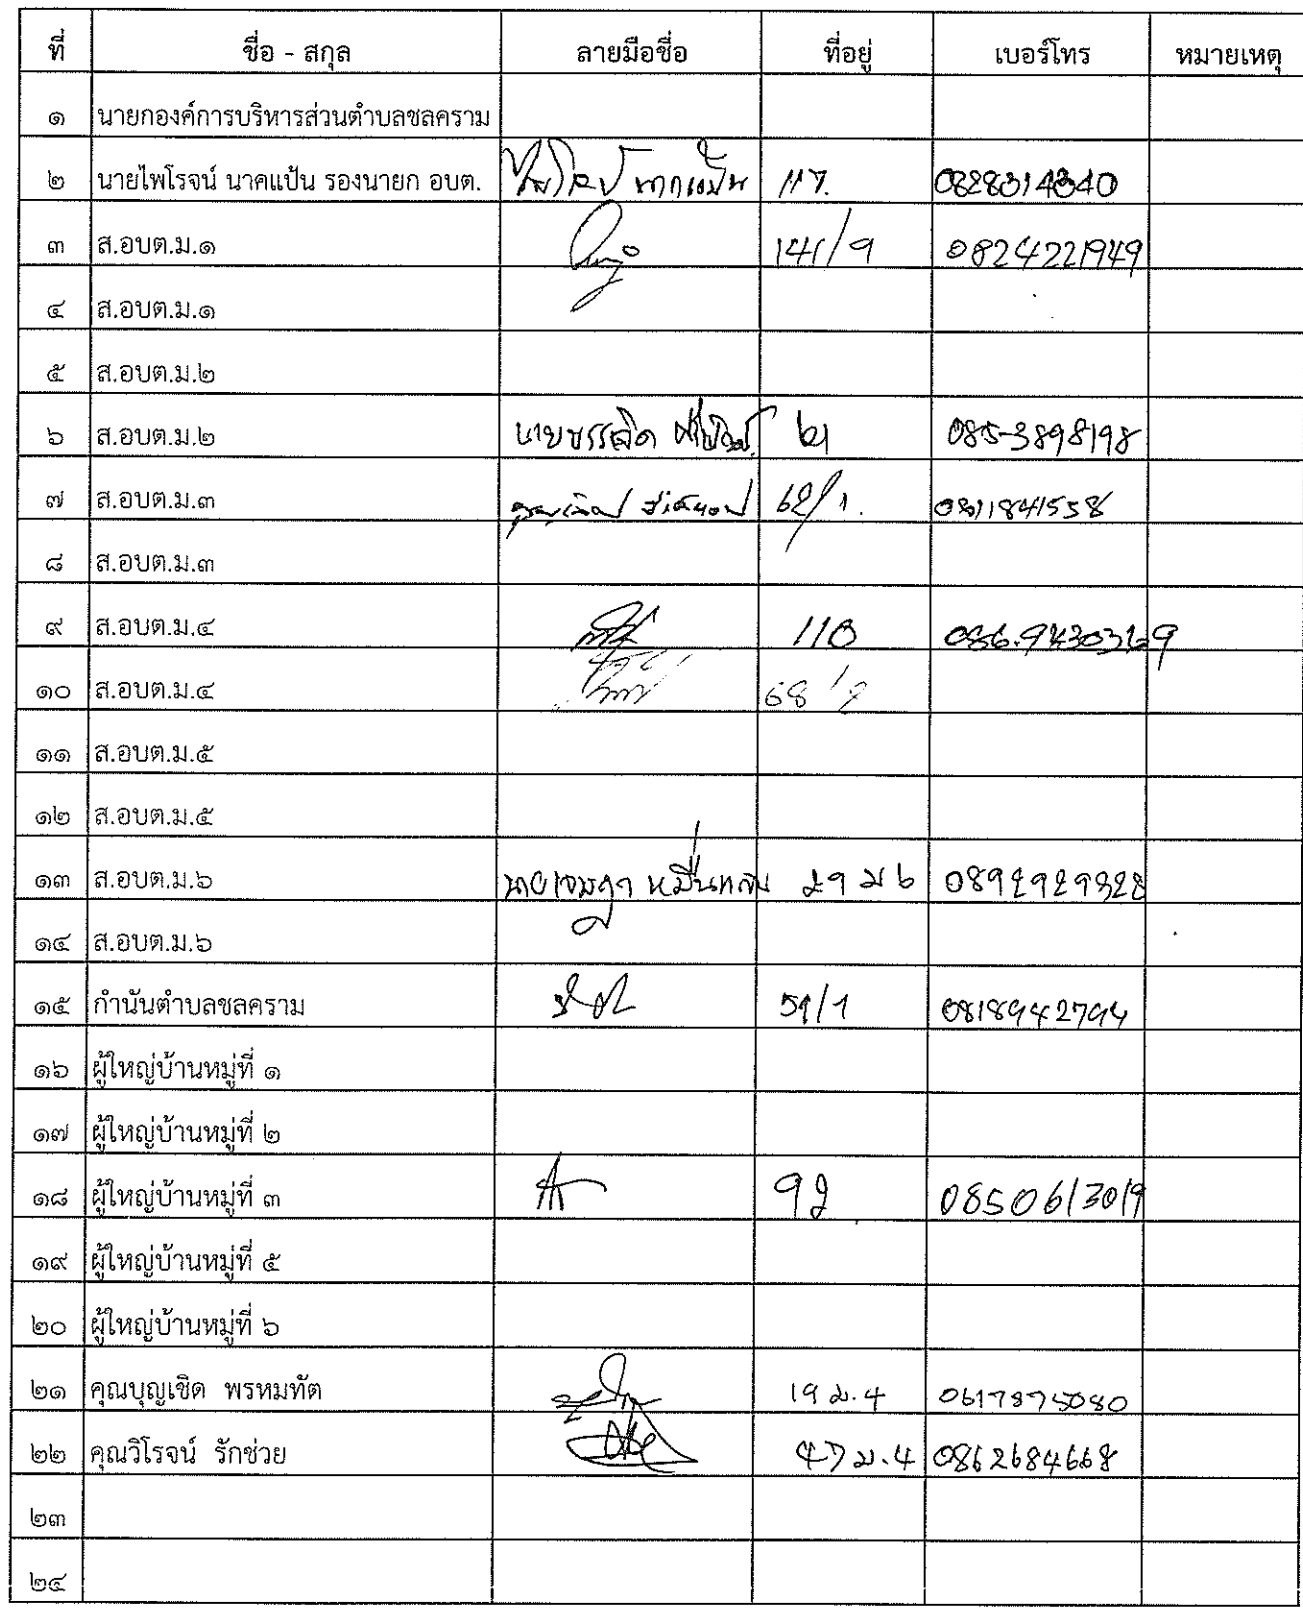 ที่ ชื่อ - สกุล ลายมือชื่อ ที่อยู่ เบอร์โทร หมายเหตุ
๑ นายกองค์การบริหารส่วนตำบลชลคราม
๒ นายไพโรจน์ นาคแป้น รองนายก อบต. ไพโรจน์ นาคแป้น 117. 0828314340
๓ ส.อบต.ม.๑ 141/9 0824221949
๔ ส.อบต.ม.๑
๕ ส.อบต.ม.๒
๖ ส.อบต.ม.๒ 085-3898198
๗ ส.อบต.ม.๓ 62/1. 0811841558
๘ ส.อบต.ม.๓
๙ ส.อบต.ม.๔ 110
๑๐ ส.อบต.ม.๔
๑๑ ส.อบต.ม.๕
๑๒ ส.อบต.ม.๕
๑๓ ส.อบต.ม.๖ นาย
๑๔ ส.อบต.ม.๖
๑๕ กำนันตำบลชลคราม 51/1 0818942794
๑๖ ผู้ใหญ่บ้านหมู่ที่ ๑
๑๗ ผู้ใหญ่บ้านหมู่ที่ ๒
๑๘ ผู้ใหญ่บ้านหมู่ที่ ๓ 92 0850613019
๑๙ ผู้ใหญ่บ้านหมู่ที่ ๕
๒๐ ผู้ใหญ่บ้านหมู่ที่ ๖
๒๑ คุณบุญเชิด พรหมทัต 19 ม.4 0617875080
๒๒ คุณวิโรจน์ รักช่วย 47 ม.4 0862684668
๒๓
๒๔